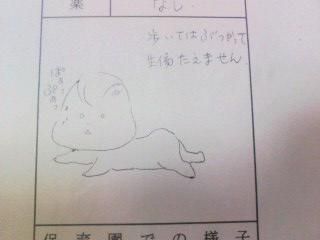 薬
なし
歩いてはぶつかって
生傷たえません
保育園での様子